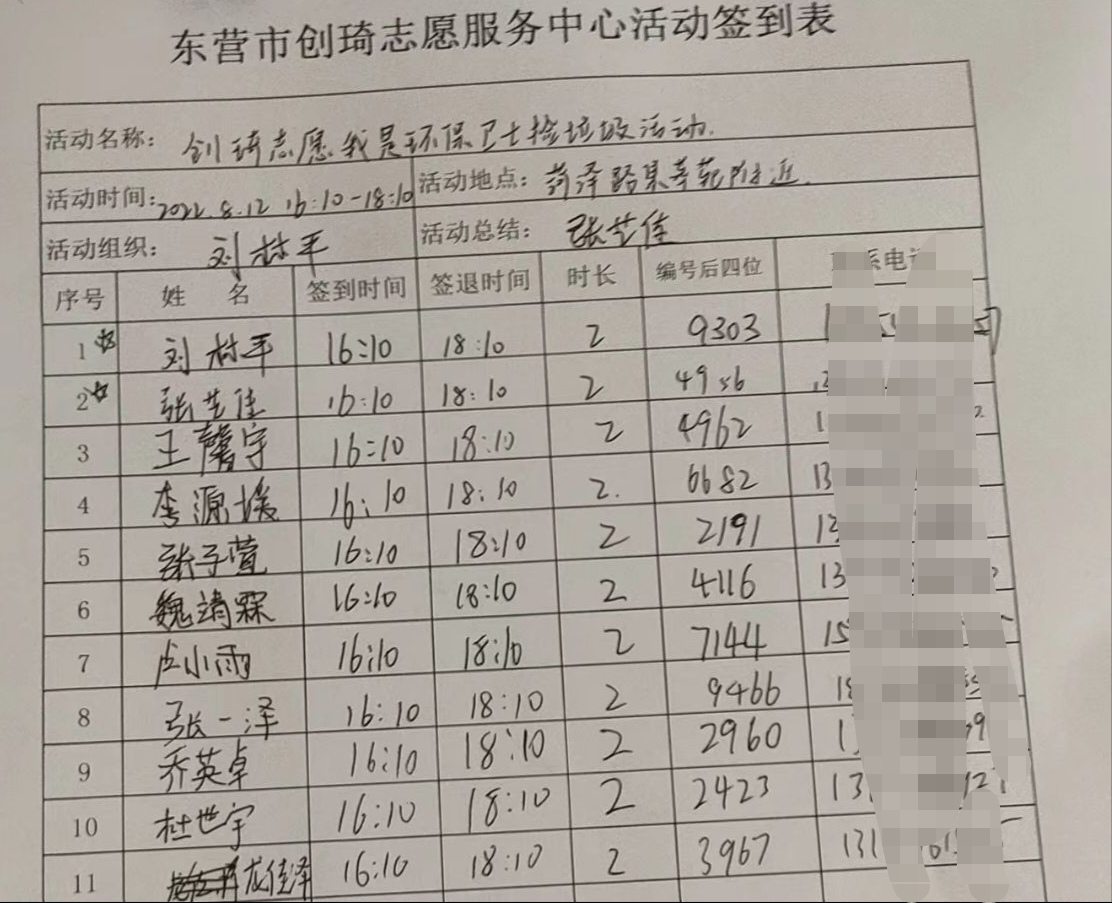 东营市创琦志愿服务中心活动签到表
活动名称: 创琦志愿我是环保卫士捡垃圾活动.
活动时间:2022.8.12 16:10-18:10 活动地点: 菏泽路果香苑附近.
活动组织: 刘树平 活动总结: 张芝佳
序号 姓 名 签到时间 签退时间 时长 编号后四位 系电
1 刘树平 16:10 18:10 2 9303
2 张芝佳 16:10 18:10 2 4956
3 王馨宇 16:10 18:10 2 4962
4 李源媛 16:10 18:10 2. 6682 13
5 张子萱 16:10 18:10 2 2191 13
6 魏靖霖 16:10 18:10 2 4116 13
7 卢小雨 16:10 18:10 2 7144 15
8 张一泽 16:10 18:10 2 9466 18
9 乔英卓 16:10 18:10 2 2960 1
10 杜世宇 16:10 18:10 2 2423 13
11 龙佳泽 16:10 18:10 2 3967 131